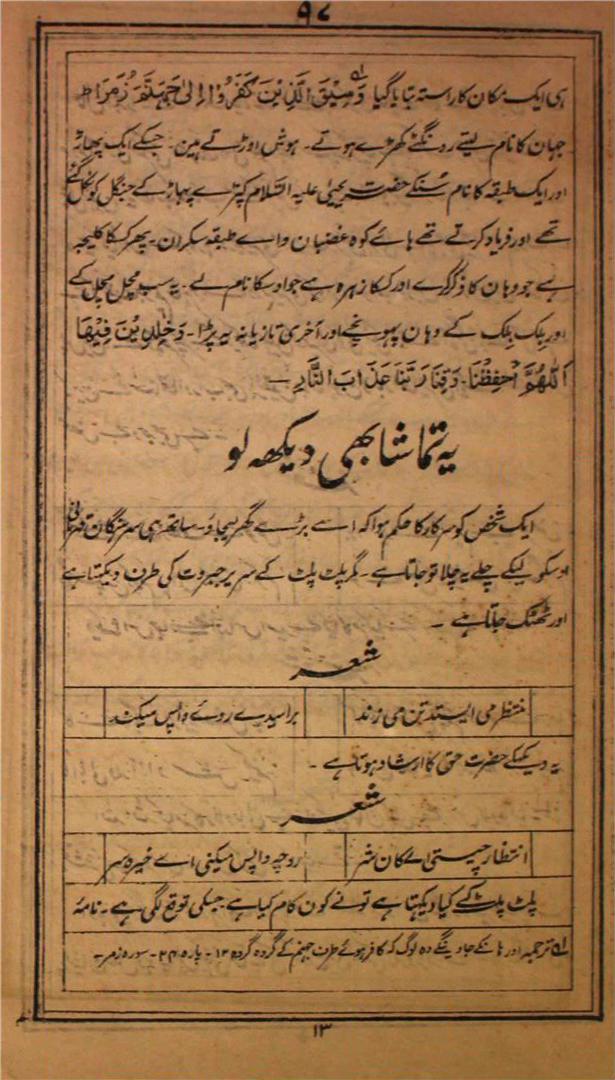 ۹۷
ہی ایک مکان کا راستہ بتایا گیا وَسِیْقَ الَّذِیْنَ کَفَرُوْا اِلیٰ جَہَنَّمَ زُمَرًا ط
جہان کا نام لیتے رونگٹے کھڑے ہوتے۔ ہوش اوڑتے ہین۔ جسکے ایک پہاڑ
اور ایک طبقہ کا نام سُنکے حضرت یحییٰ علیہ السّلام کپڑے پہاڑ کے جنگل کو نکل گئے
تھے اور فریاد کرتے تھے ہائے کوہ غضبان واے طبقہ سکران۔ پھر کسکا کلیجہ
ہے جو وہان کا ذکر کرے اور کسکا زہرہ ہے جو اوسکا نام لے۔ یہ سب مچل مچل کے
اور بلک بلک کے وہان پہونچے اور آخری تازیانہ یہ پڑا۔ وَخٰلِدِیْنَ فِیْهَا
اَللّٰهُمَّ احْفِظْنَا۔ وَقِنَا رَبَّنَا عَذَابَ النَّارِ۔
یہ تماشا بھی دیکھ لو
ایک شخص کو سرکار کا حکم ہوا کہ اسے بڑے گھر لیجاؤ۔ ساتھ ہی سرہنگان قہرمانی
اوسکو لیکے چلے یہ چلا تو جاتا ہے۔ گر پلٹ پلٹ کے سریر جبروت کی طرف دیکہتا ہے
اور ٹھٹک جاتا ہے۔
شعر
منتظر می ایستد تن می زند برامیدے روے واپس میکند
یہ دیکہکے حضرت حق کا ارشاد ہوتا ہے۔
شعر
انتظار چیستی اے کان شر رو چہ واپس میکنی اے خیرہ سر
پلٹ پلٹ کے کیا دیکہتا ہے تونے کون کام کیا ہے جسکی توقع لگی ہے۔ نامۂ
لہ ترجمہ اور ہانکے جاوینگے وہ لوگ کہ کافر ہوئے طرف جہنم کے گروہ گروہ ۱۲۔ پارہ ۲۴۔ سورہ زمر۔
۱۳